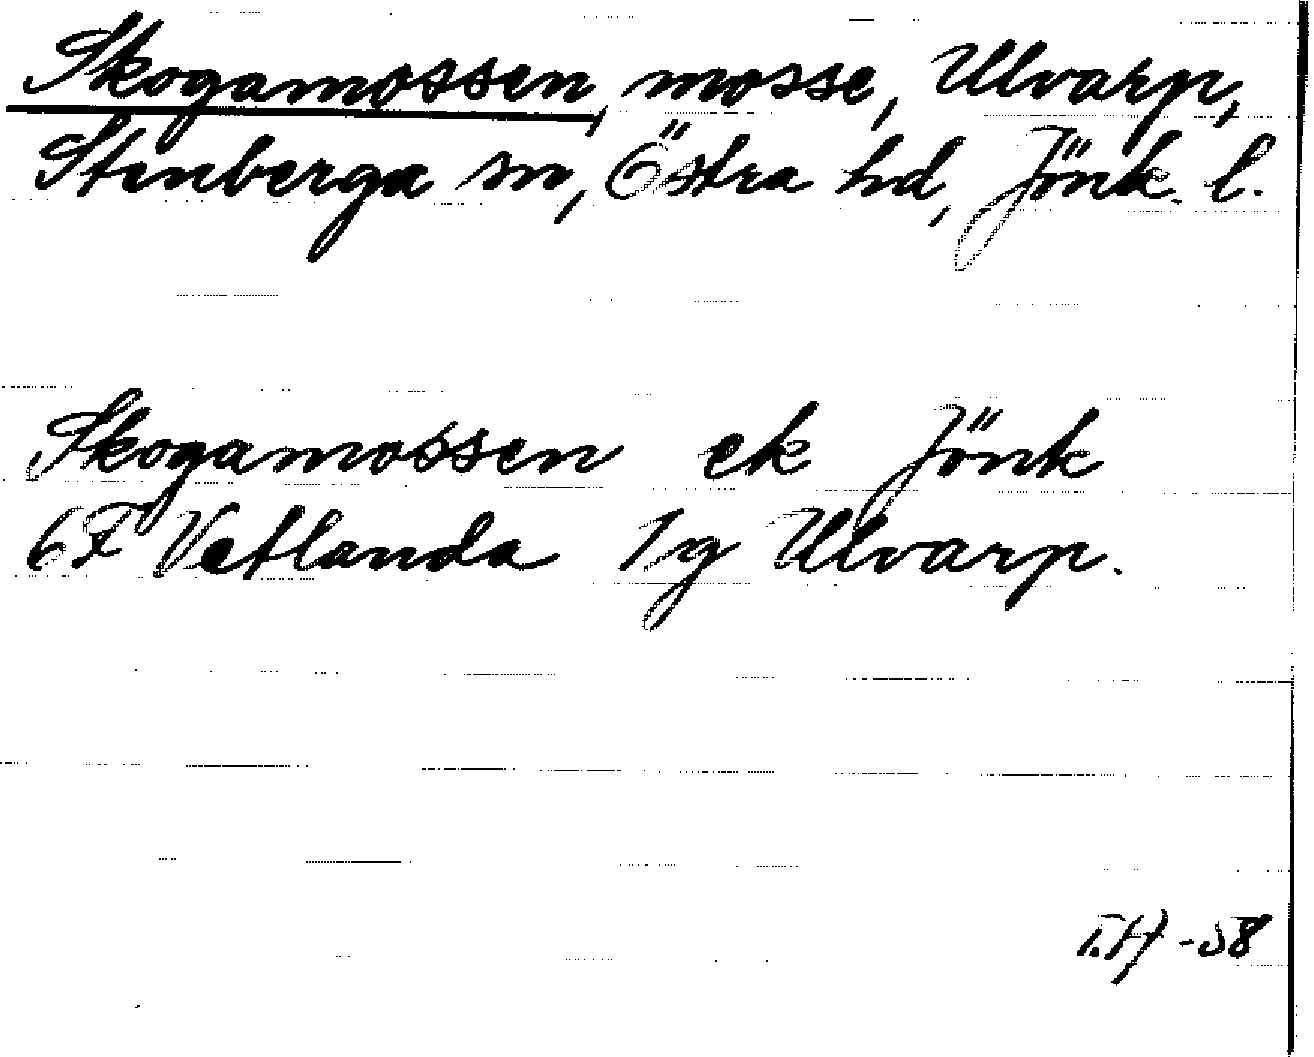 Skogamossen, mosse, Ulvarp,
Stenberga sn, Östra hd, Jönk. l.
Skogamossen ek Jönk
6F Vetlanda 1g Ulvarp.
T.H -58